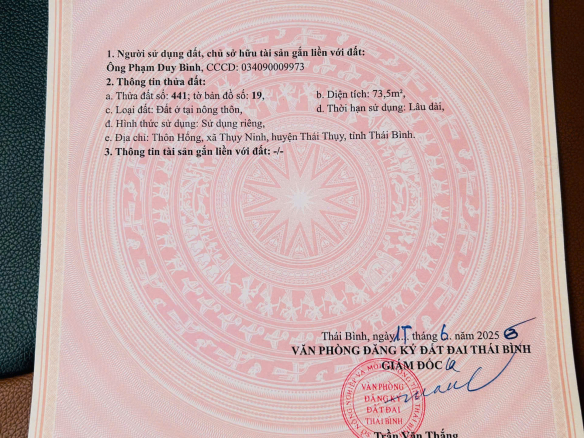 1. Người sử dụng đất, chủ sở hữu tài sản gắn liền với đất:
Ông Phạm Duy Bình, CCCD: 034090009973
2. Thông tin thửa đất:
a. Thửa đất số: 441; tờ bản đồ số: 19, b. Diện tích: 73,5m²,
c. Loại đất: Đất ở tại nông thôn, d. Thời hạn sử dụng: Lâu dài,
đ. Hình thức sử dụng: Sử dụng riêng,
e. Địa chỉ: Thôn Hống, xã Thụy Ninh, huyện Thái Thụy, tỉnh Thái Bình.
3. Thông tin tài sản gắn liền với đất: -/-
Thái Bình, ngày 15 tháng 6 năm 2025
VĂN PHÒNG ĐĂNG KÝ ĐẤT ĐAI THÁI BÌNH
GIÁM ĐỐC
VĂN PHÒNG
ĐĂNG KÝ
ĐẤT ĐAI
THÁI BÌNH
Trần Văn Thắng